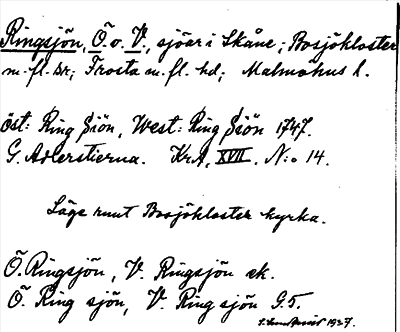 Ringsjön, Ö. o. V., sjöar i Skåne; Bosjökloster
m. fl. sr; Frosta m. fl. hd; Malmöhus l.
Öst: Ring Siön, West: Ring Siön 1747.
G. Adlerstierna. KrA, XVII. N:o 14.
Läge runt Bosjökloster kyrka.
Ö. Ringsjön, V. Ringsjön ek.
Ö. Ring sjön, V. Ring sjön G5.
1927.